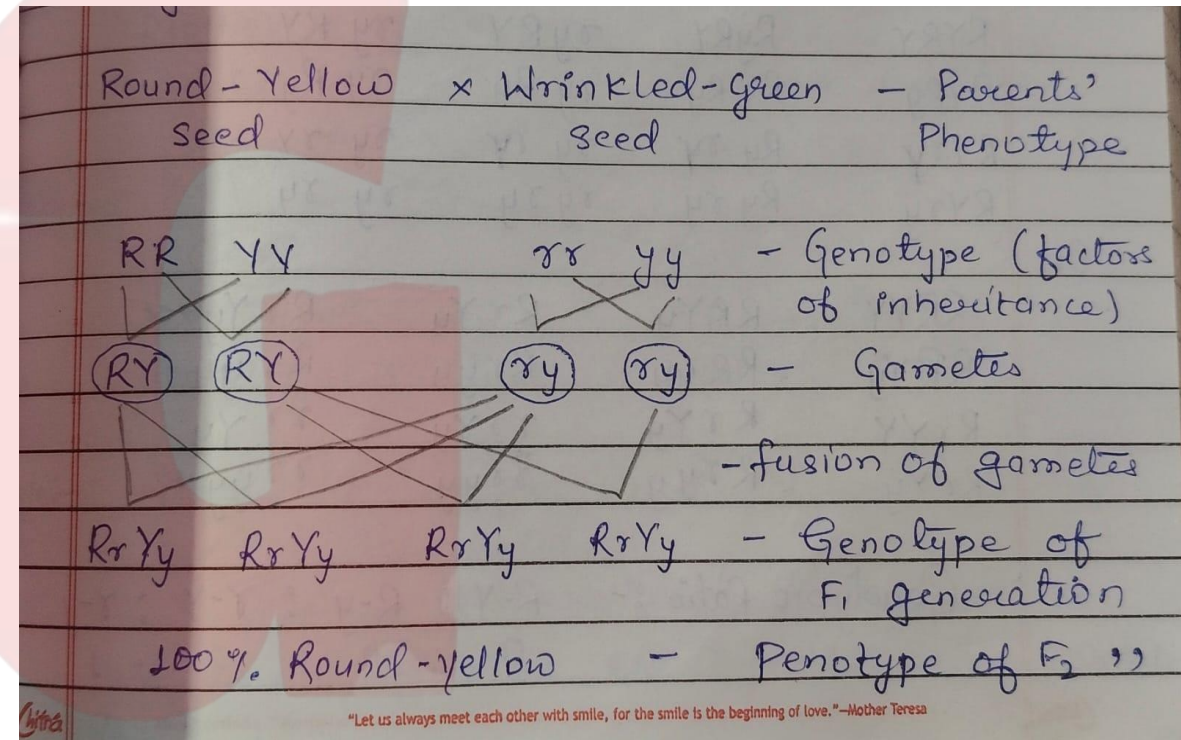 Round - Yellow × Wrinkled - green - Parents'
seed seed Phenotype
RR YY rr yy - Genotype (factors
of inheritance)
RY RY ry ry - Gametes
- fusion of gametes
RrYy RrYy RrYy RrYy - Genotype of
F₁ generation
100 %. Round - yellow - Penotype of F₂ ,,
Chitra
"Let us always meet each other with smile, for the smile is the beginning of love."–Mother Teresa